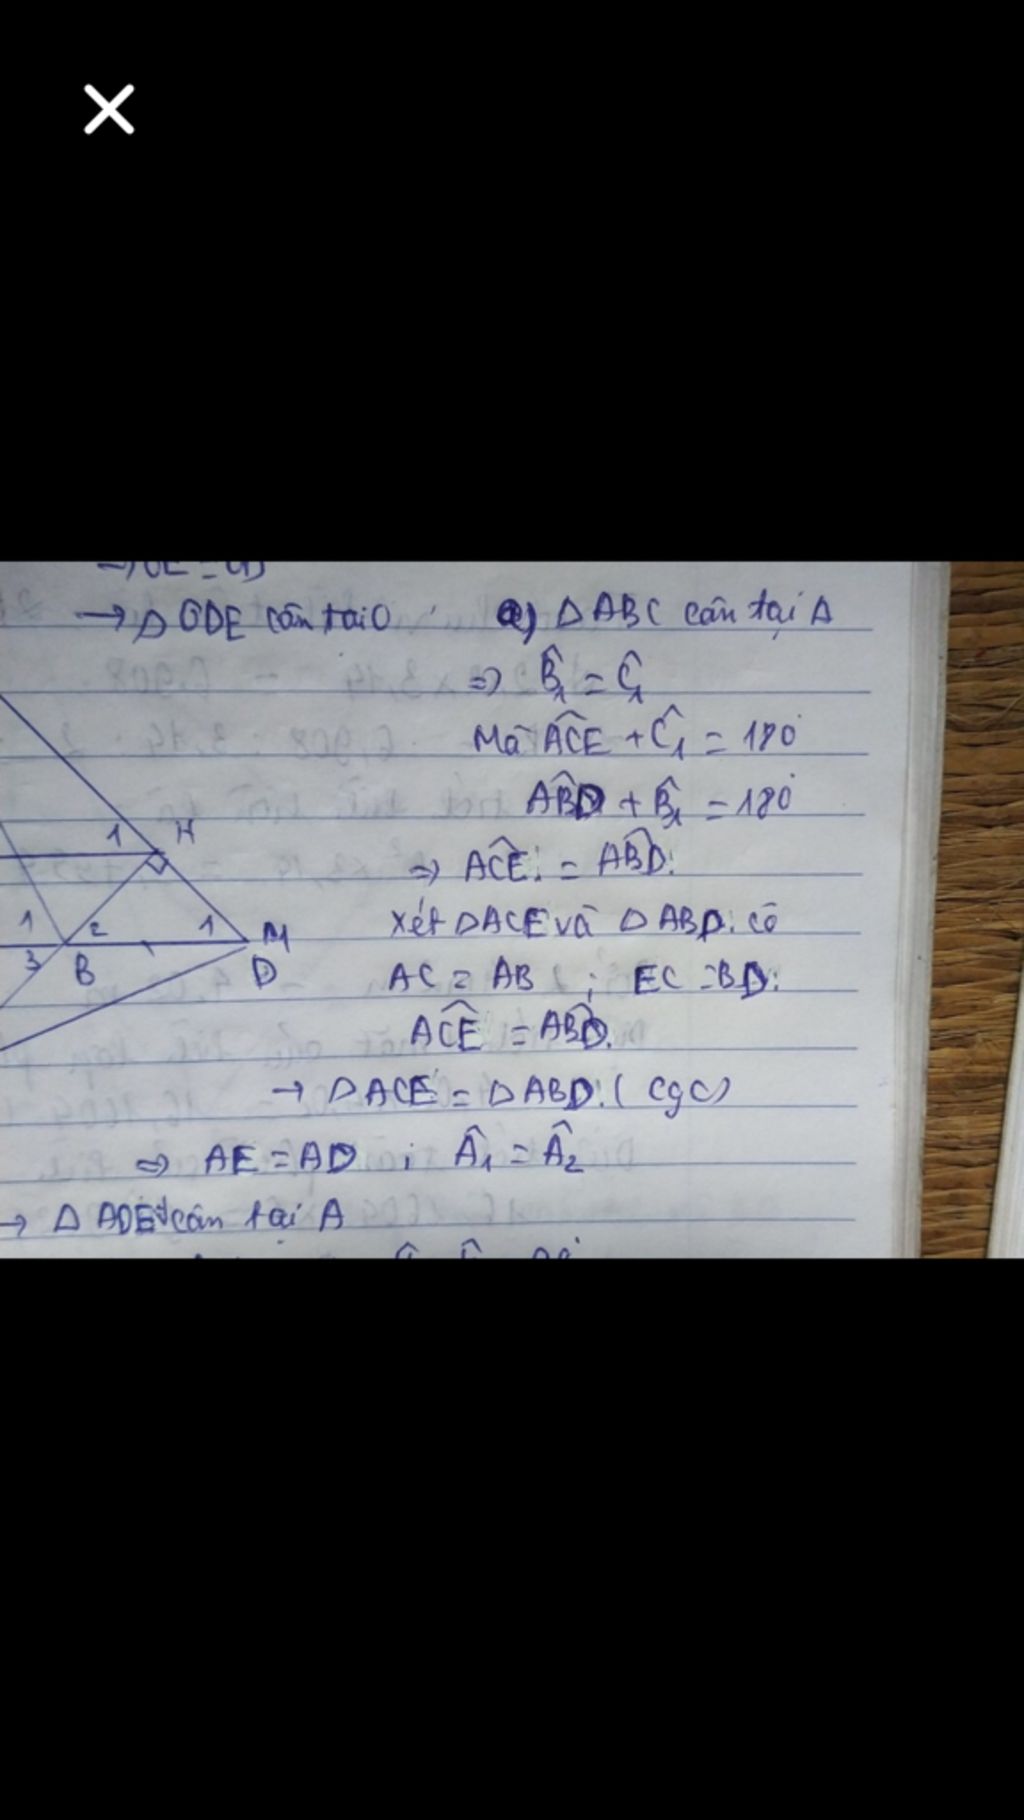 → Δ ODE cân tại O
a) Δ ABC cân tại A
⇒ B̂₁ = Ĉ₁
Mà ACE + Ĉ₁ = 180°
ABD + B̂₁ = 180°
⇒ ACE = ABD
Xét Δ ACE và Δ ABD: có
AC = AB ; EC = BD:
ACE = ABD.
→ Δ ACE = Δ ABD. (cgc)
⇒ AE = AD ; Â₁ = Â₂
→ Δ ADE cân tại A
1 H
1 2 1 M
3 B D